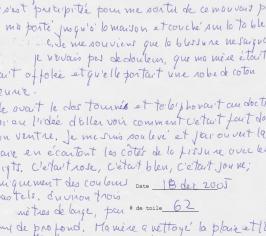 s'est précipité pour me sortir de ce mauvais p
m'a porté jusqu'à la maison et couché sur la table
je me souviens que la blessure ne saign
je n'avais pas de douleur, que ma mère était
ait affolée et qu'elle portait une robe de coton
avait le dos tourné et téléphonait au docte
l'idée d'aller voir comment c'était fait da
ventre, je me suis soulevé et j'ai ouvert la
en écartant les côtés de la fissure avec les
igts. C'était rose, c'était bleu, c'était jaune;
uniquement des couleurs
pastels, d'environ trois
mètres de large, peu
de profond. Ma mère a nettoyé la plaie et l'
Date 18 dec 2005
# de toile 62